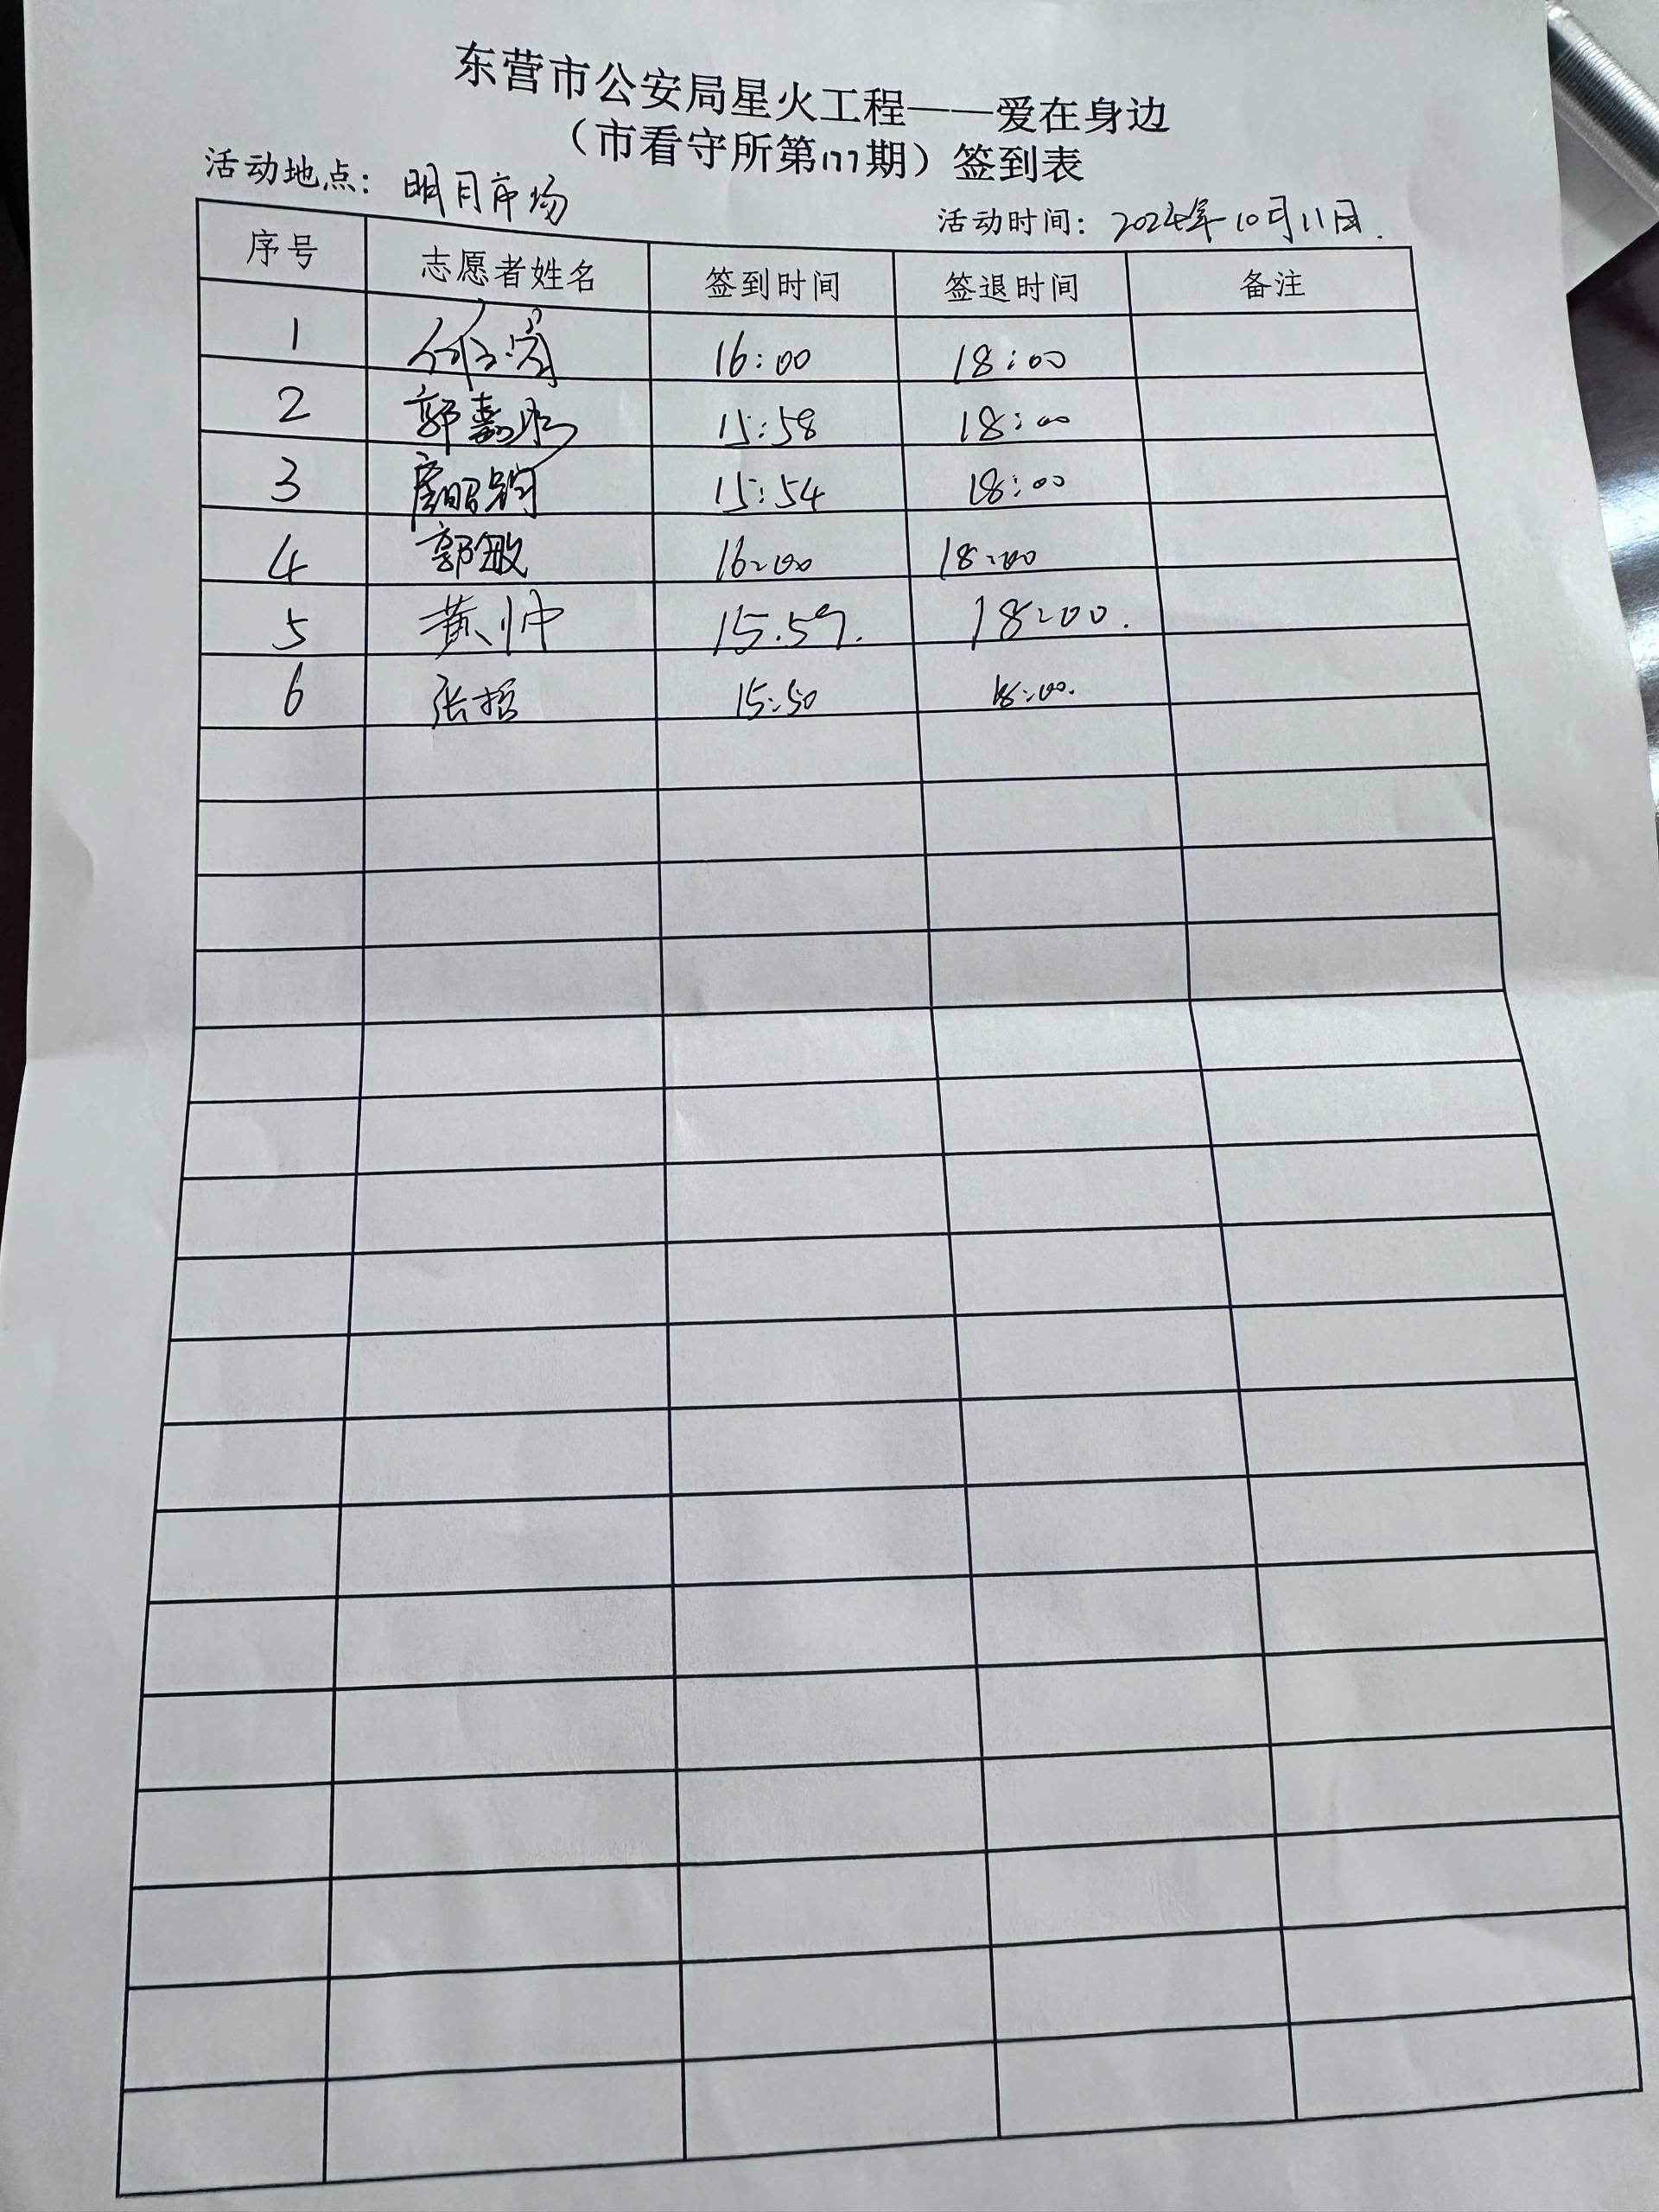 东营市公安局星火工程——爱在身边
（市看守所第177期）签到表
活动地点：明月市场
活动时间：2024年10月11日.
序号 志愿者姓名 签到时间 签退时间 备注
1 16:00 18:00
2 郭嘉 15:58 18:00
3 15:54 18:00
4 郭敏 16:00 18:00
5 黄帅 15.59. 18:00.
6 张哲 15:50 18:00.